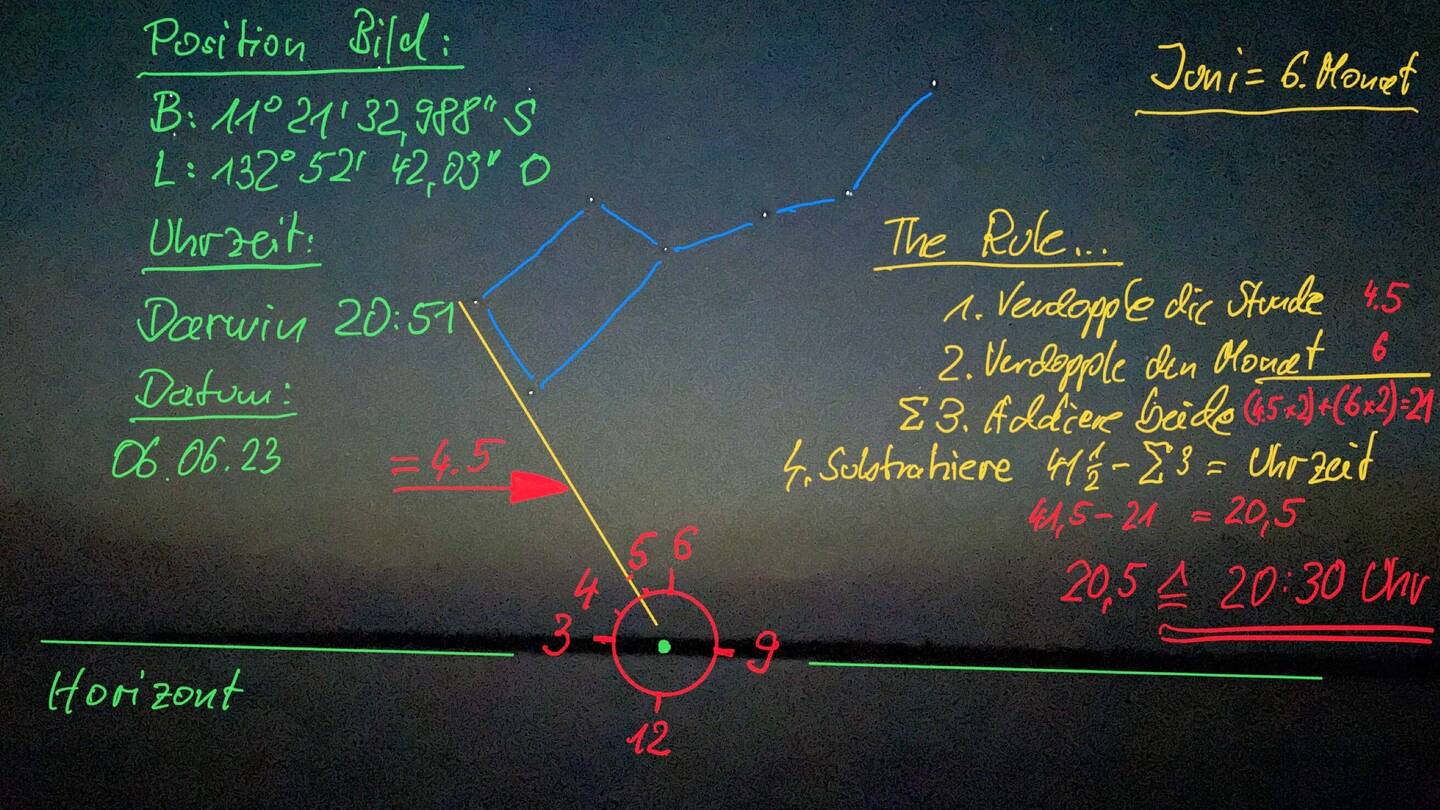 Position Bild:
B: 11° 21' 32,988" S
L: 132° 52' 42,03" O
Uhrzeit:
Darwin 20:51
Datum:
06.06.23
= 4.5
Juni = 6. Monat
The Rule...
1. Verdopple die Stunde 4.5
2. Verdopple den Monat 6
Σ 3. Addiere beide (4.5×2)+(6×2)=21
4. Substrahiere 41 1/2 - Σ 3 = Uhrzeit
41,5 - 21 = 20,5
20,5 ≙ 20:30 Uhr
5 6
4
3 9
12
Horizont